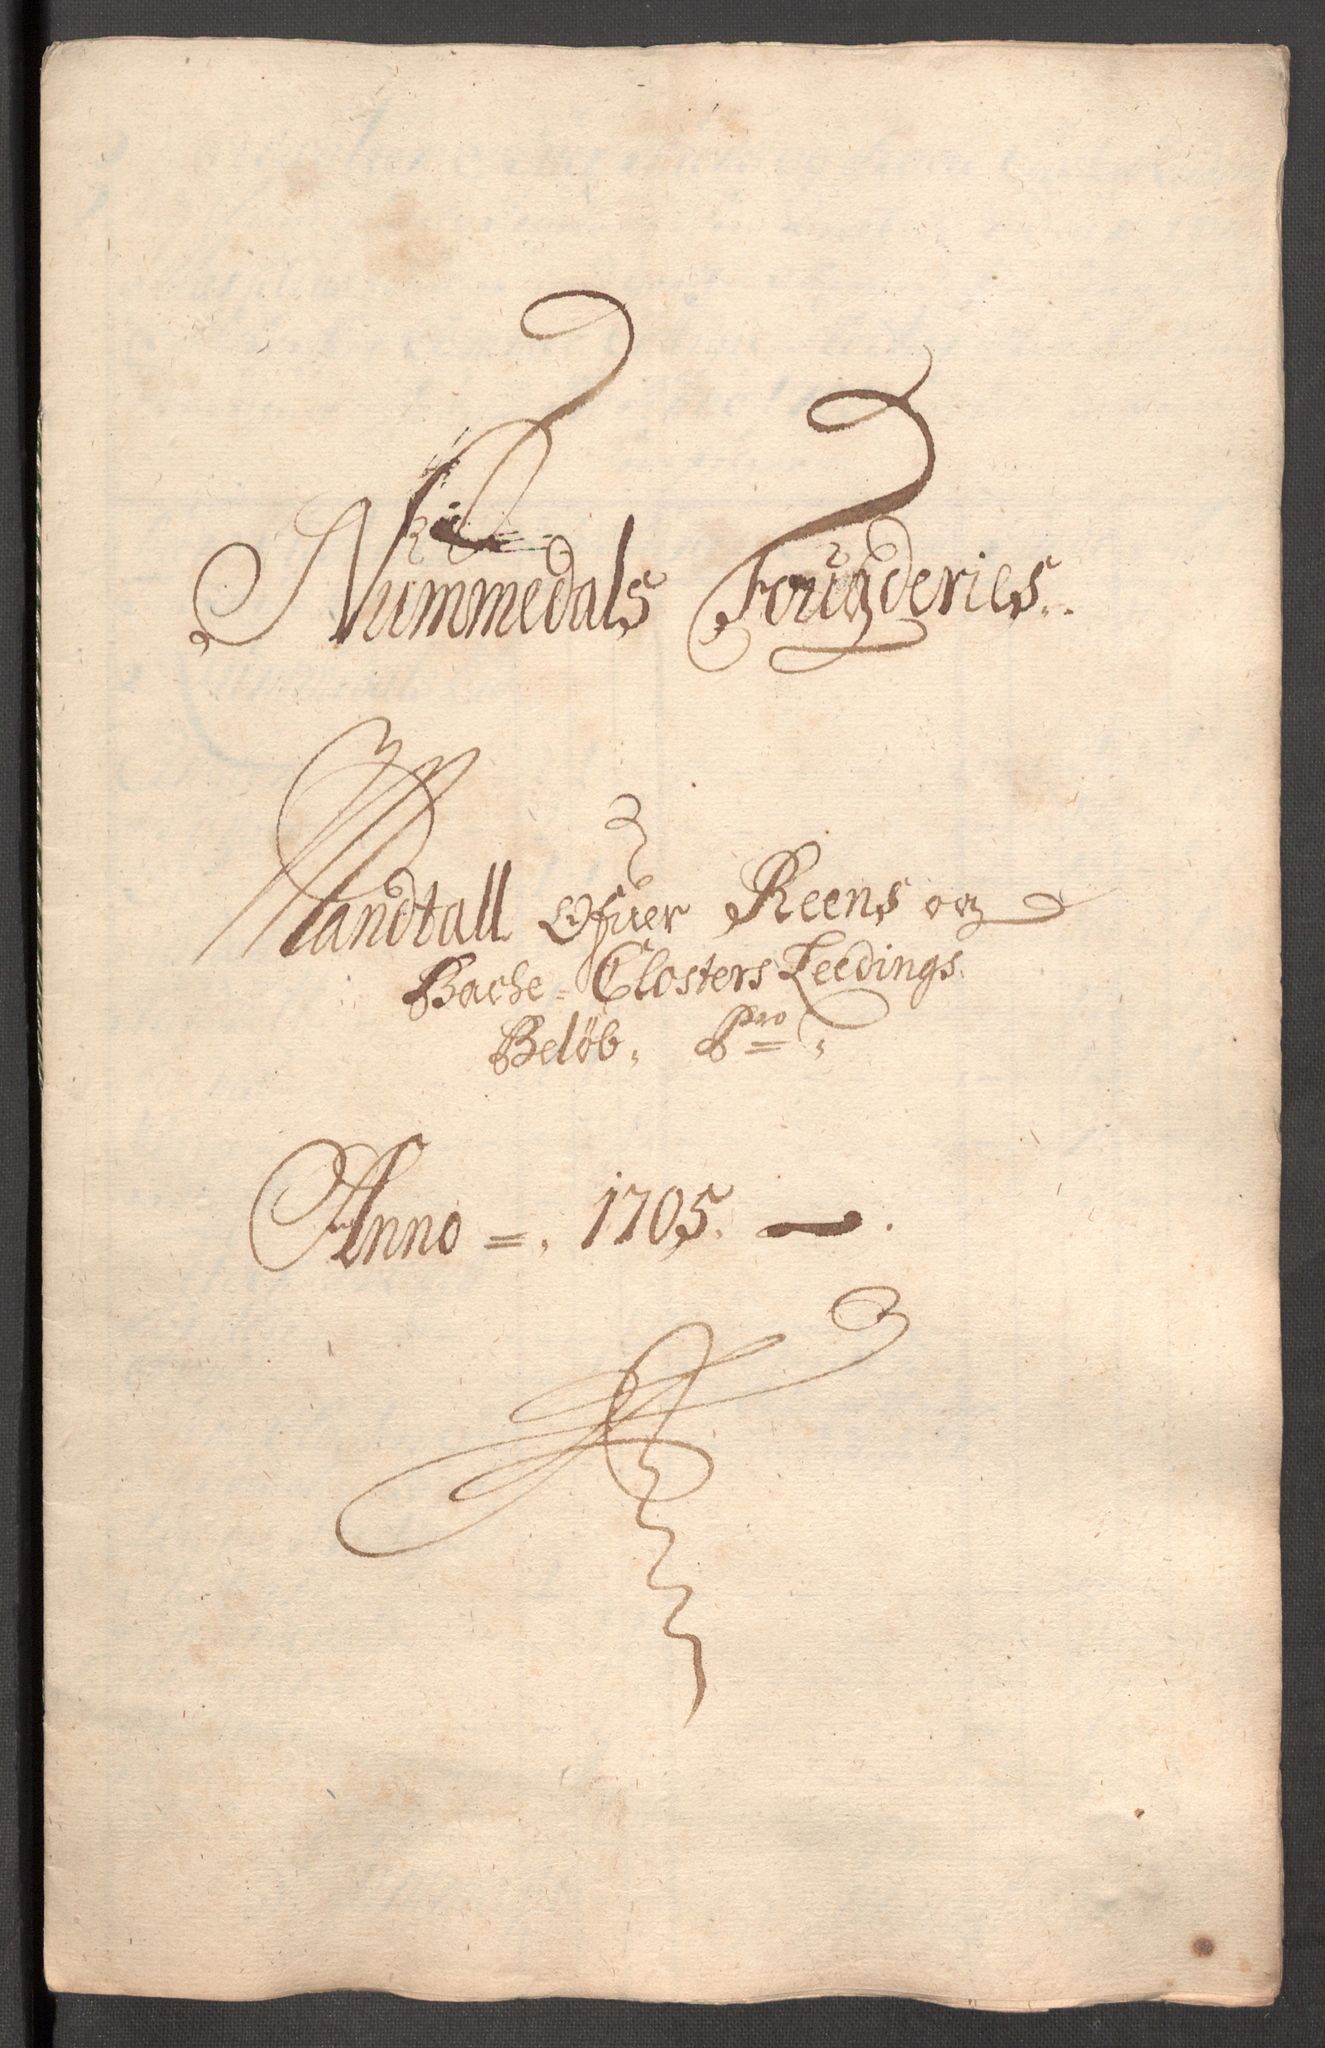 Nummedals Fougderies.
Mandtall Ofuer Reens og
Bache=Closters Leedings
Beløb, Pro
Anno =. 1705.